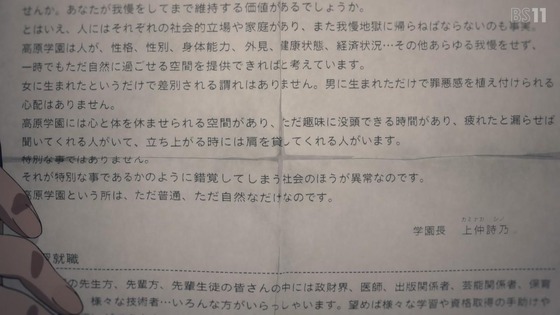 BS11
せんか。あなたが我慢をしてまで維持する価値があるでしょうか。
とはいえ、人にはそれぞれの社会的立場や家庭があり、また我慢地獄に帰らねばならないのも事実。
高原学園は人が、性格、性別、身体能力、外見、健康状態、経済状況…その他あらゆる我慢をせず、
一時でもただ自然に過ごせる空間を提供できればと考えています。
女に生まれたというだけで差別される謂れはありません。男に生まれただけで罪悪感を植え付けられる
心配はありません。
高原学園には心と体を休ませられる空間があり、ただ趣味に没頭できる時間があり、疲れたと漏らせば
聞いてくれる人がいて、立ち上がる時には肩を貸してくれる人がいます。
特別な事ではありません。
それが特別な事であるかのように錯覚してしまう社会のほうが異常なのです。
高原学園という所は、ただ普通、ただ自然なだけなのです。
学園長 上仲詩乃
就職
の先生方、先輩方、先輩生徒の皆さんの中には政財界、医師、出版関係者、芸能関係者、保育
様々な技術者…いろんな方がいらっしゃいます。望めば様々な学習や資格取得の手助けや